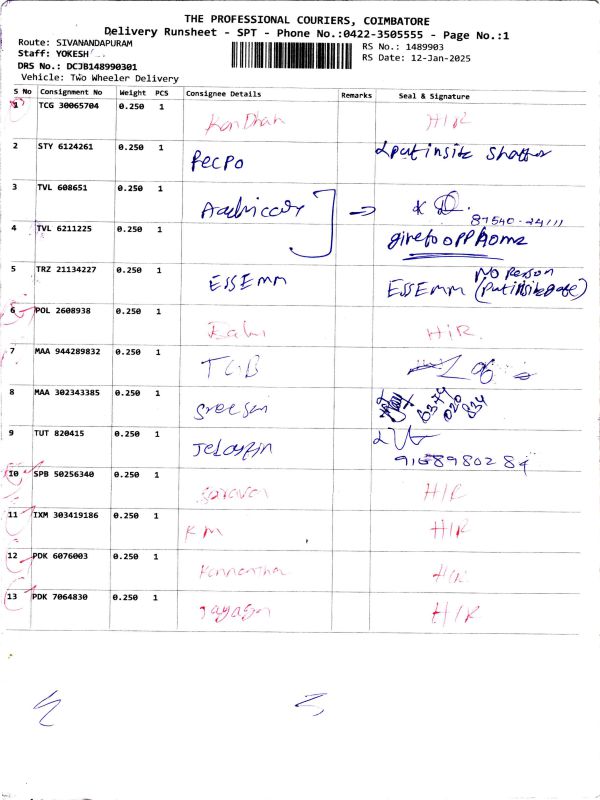 THE PROFESSIONAL COURIERS, COIMBATORE
Delivery Runsheet - SPT - Phone No.:0422-3505555 - Page No.:1
Route: SIVANANDAPURAM
RS No.: 1489903
Staff: YOKESH
RS Date: 12-Jan-2025
DRS No.: DCJB148990301
Vehicle: Two Wheeler Delivery
S No Consignment No Weight PCS Consignee Details Remarks Seal & Signature
1 TCG 30065704 0.250 1 KanDhan HIR
2 STY 6124261 0.250 1 Put insite
3 TVL 608651 0.250 1
87540-24111
4 TVL 6211225 0.250 1 give to opp Home
5 TRZ 21134227 0.250 1 ESSEmm ESSEmm No Person (Put insite gate)
6 POL 2608938 0.250 1 HIR
7 MAA 944289832 0.250 1
8 MAA 302343385 0.250 1 6374 020 834
9 TUT 820415 0.250 1
10 SPB 50256340 0.250 1 Saravan HIR
11 IXM 303419186 0.250 1 KM HIR
12 PDK 6076003 0.250 1 HIR
13 PDK 7064830 0.250 1 HIR